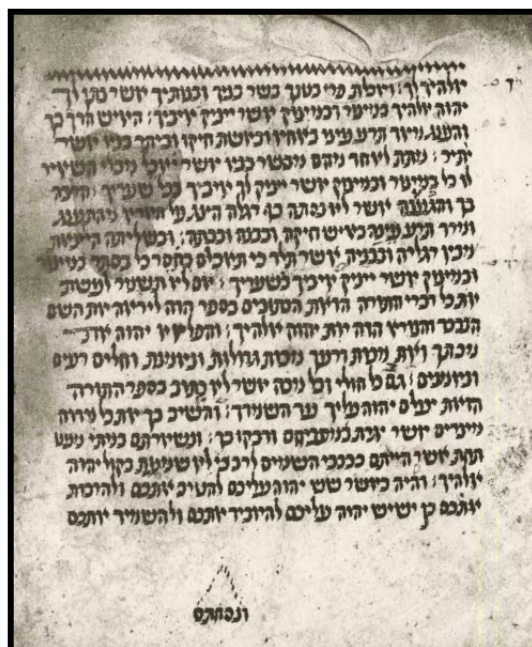 אלהיך לך: ואכלת פרי בטנך בשר בניך ובנתיך אשר נתן לך
יהוה אלהיך במצור ובמצוק אשר יציק איביך: האיש הרך בך
והענג מאד תרע עינו באחיו ובאשת חיקו וביתר בניו אשר
יתיר: מתת לאחד מהם מבשר בניו אשר יאכל מבלי השאיר
לו כל במצור ובמצוק אשר יציק לך איביך בכל שעריך: הרכה
בך והענגה אשר לא נסתה כף רגלה הצג על הארץ מהתענג
ומרך תרע עינה באיש חיקה ובבנה ובבתה: ובשליתה היוצת
מבין רגליה ובבניה אשר תלד כי תאכלם בחסר כל בסתר במצור
ובמצוק אשר יציק איביך בשעריך: אם לא תשמר לעשות
את כל דברי התורה הזאת הכתבים בספר הזה ליראה את השם
הנכבד והנורא הזה את יהוה אלהיך: והפלא יהוה את
מכתך ואת מכות זרעך מכות גדלות ונאמנת וחלים רעים
ונאמנים: גם כל חולי וכל מכה אשר לא כתוב בספר התורה
הזאת יעלם יהוה עליך עד השמדך: והשיב בך את כל מדוה
מצרים אשר יגרת מפניהם ודבקו בך: ונשארתם במתי מעט
תחת אשר הייתם ככוכבי השמים לרב כי לא שמעת בקול יהוה
אלהיך: והיה כאשר שש יהוה עליכם להטיב אתכם ולהרבות
אתכם כן ישיש יהוה עליכם להאביד אתכם ולהשמיד אתכם
ונסחתם